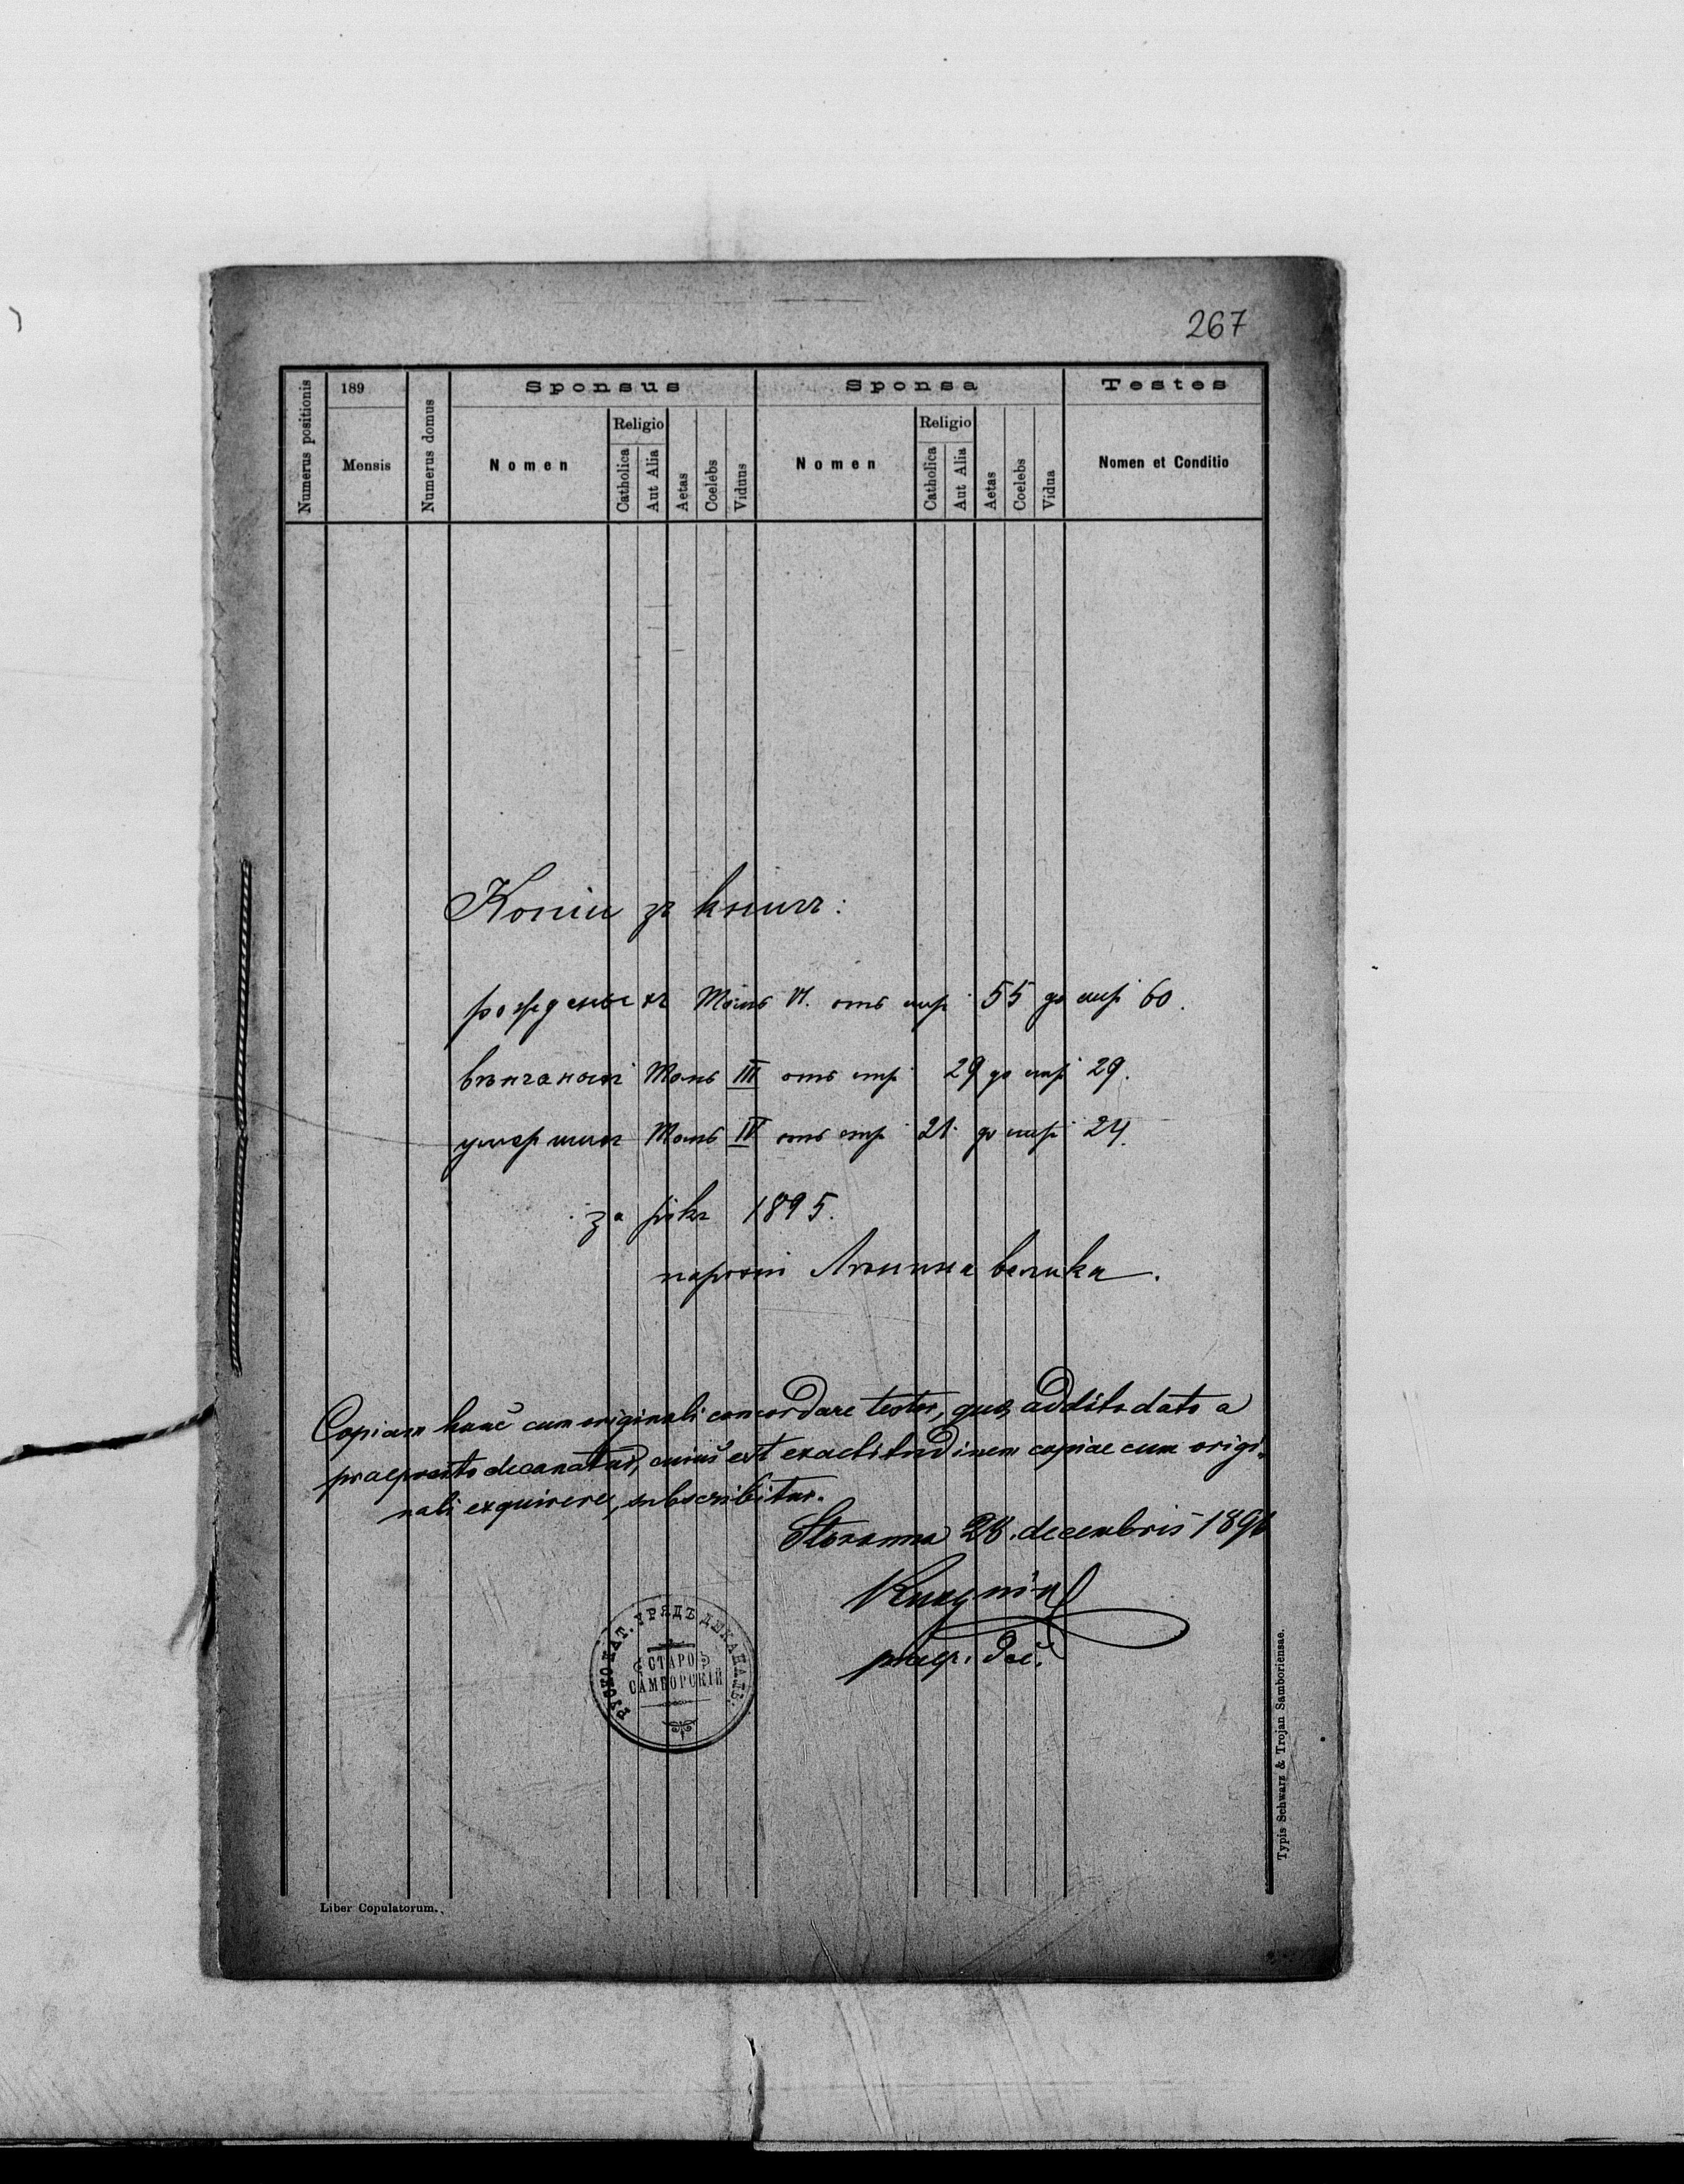 267
Numerus positionis
189
Mensis
Numerus domus
Sponsus
Nomen
Religio
Catholica
Aut Alia
Aetas
Coelebs
Viduus
Sponsa
Nomen
Religio
Catholica
Aut Alia
Aetas
Coelebs
Vidua
Testes
Nomen et Conditio
Копіи зъ книгъ:
рожденыхъ Томъ VI. отъ стр. 55 до стр. 60.
вѣнчаныхъ Томъ III отъ стр. 29 до стр. 29.
умершихъ Томъ IV отъ стр. 21. до стр. 24.
за рокъ 1895.
парохіи Лѣнина велика.
Copiam hanc cum originali concordare testor, quo addito dato a
praeposito decanatus, cuius est exactitudinem copiae cum origi-
nali exquirere, subscribitur.
28. decembris 189
РУСКО КАТ. УРЯДЪ ДЕКАНАЛЬ.
СТАРО
САМБОРСКІЙ
Liber Copulatorum.
Typis Schwarz & Trojan Samboriensae.